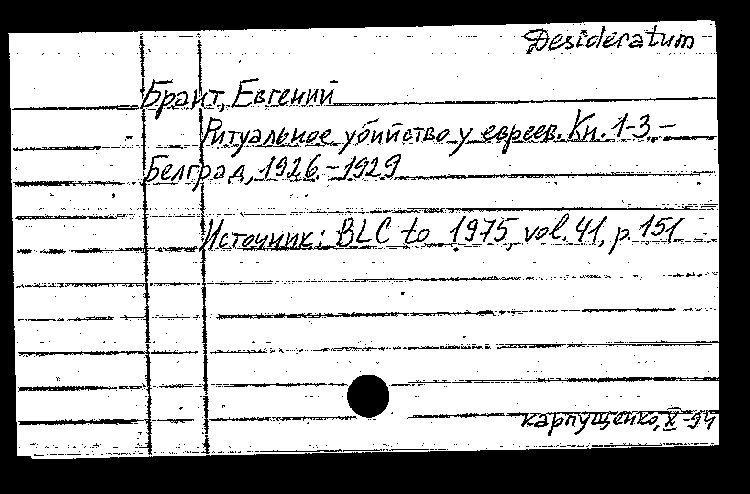 Desideratum
Брант, Евгений
Ритуальное убийство у евреев. Кн. 1-3. –
Белград, 1926. – 1929
Источник: BLC to 1975, vol. 41, p. 151
Карпущенко, X -94